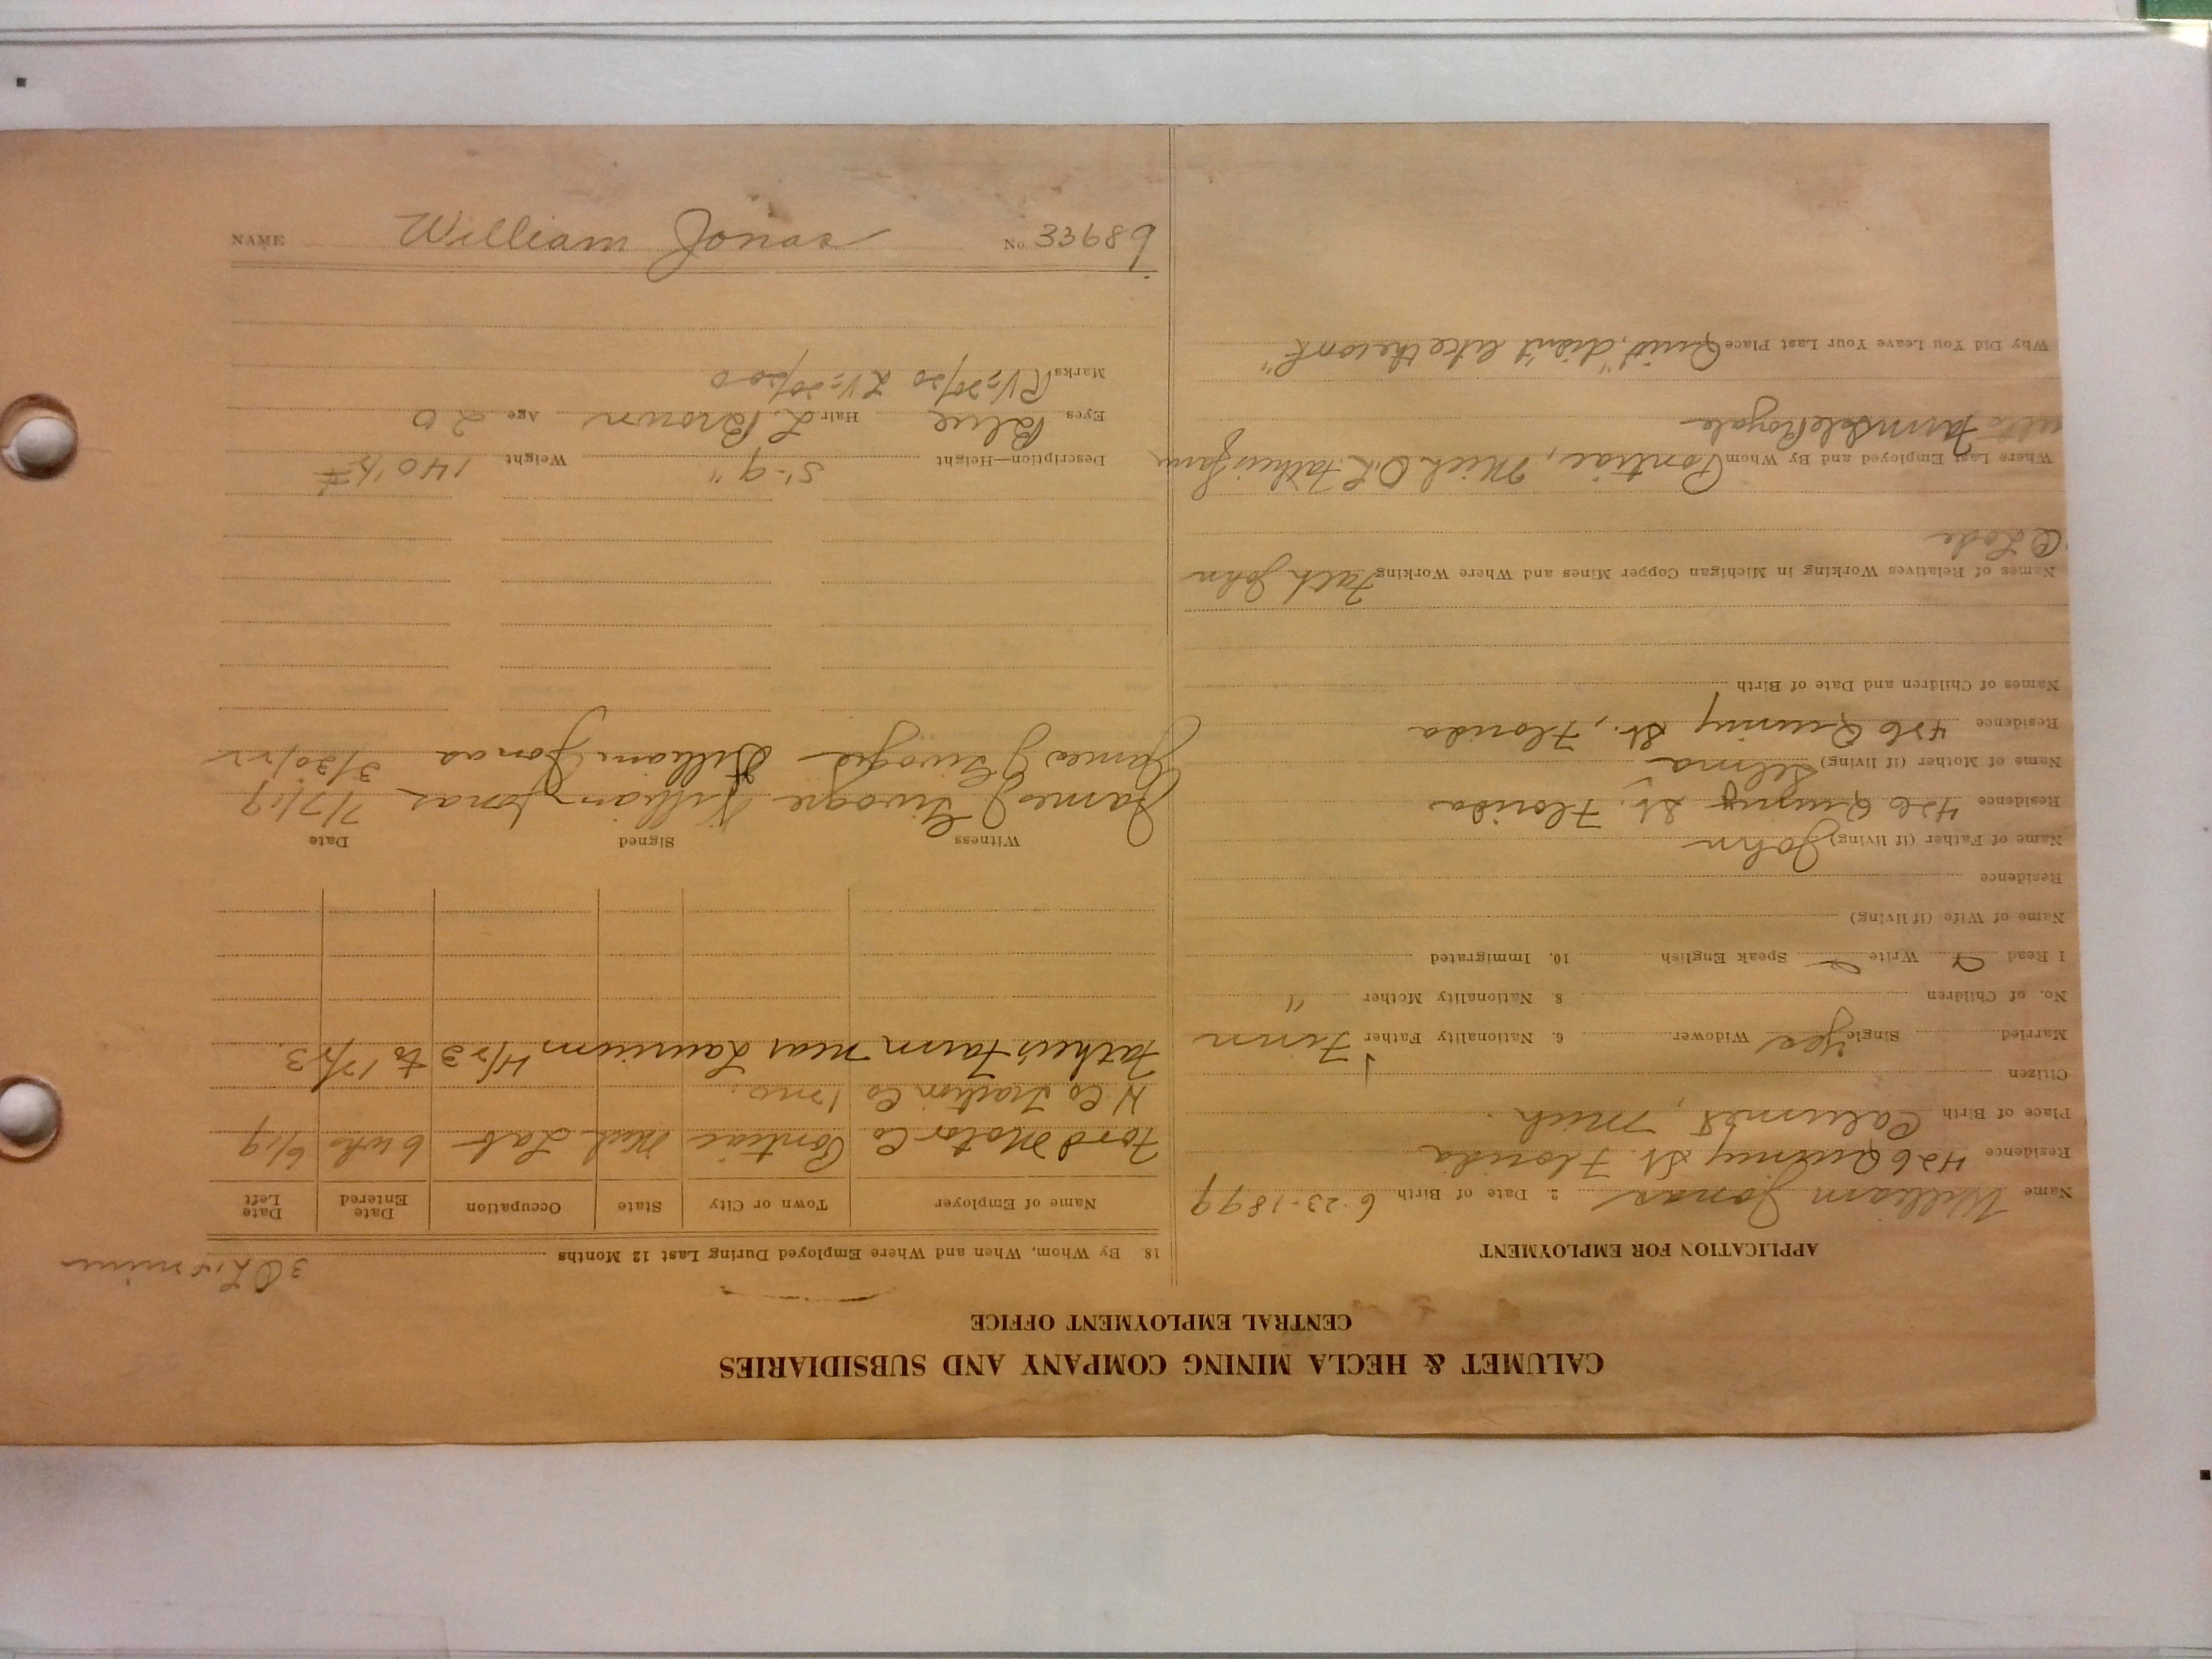 CALUMET & HECLA MINING COMPANY AND SUBSIDIARIES
CENTRAL EMPLOYMENT OFFICE
APPLICATION FOR EMPLOYMENT
Name William Jonas 2. Date of Birth 6-23-1899
Residence 426 Quincy St. Florida
Place of Birth Calumet, Mich.
Citizen
Married Single Yes Widower 6. Nationality Father Finn
No. of Children 8. Nationality Mother "
I Read Write Speak English 10. Immigrated
Name of Wife (if living)
Residence
Name of Father (if living) John
Residence 426 Quincy St. Florida
Name of Mother (if living) Selma
Residence 426 Quincy St., Florida
Names of Children and Date of Birth
Names of Relatives Working in Michigan Copper Mines and Where Working Fath John
Lode
Where Last Employed and By Whom Pontiac, Mich. Fathers farm
Farm Isle Royale
Why Did You Leave Your Last Place Quit, "didn't like the work"
18. By Whom, When and Where Employed During Last 12 Months
Name of Employer Town or City State Occupation Date Entered Date Left
Ford Motor Co Pontiac Mich Lab 6 wks 6/19
H. Co Traction Co 1 mo.
Fathers Farm near Laurium 4/23 to 12/23.
Witness Signed Date
James J Givogre William Jonas 7/7/19
James J Givogre William Jonas 3/30/22
Description—Height 5'-9" Weight 140 1/2 #
Eyes Blue Hair L. Brown Age 20
Marks RV=20/20 LV=20/200
NAME William Jonas No. 33689